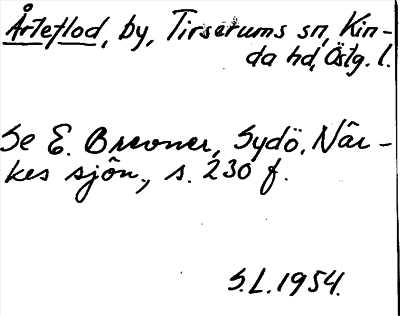 Årteflod, by, Tirserums sn, Kin-
da hd, Östg. l.
Se E. Brevner, Sydö. När-
kes sjön., s. 230 f.
S.L. 1954.